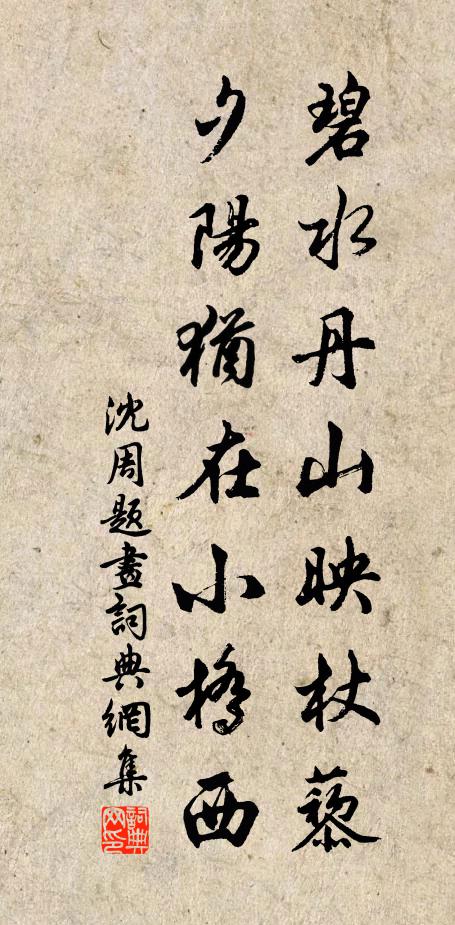 碧水丹山映杖藜
夕陽猶在小橋西
沈周題畫詞典網集
詞典網印